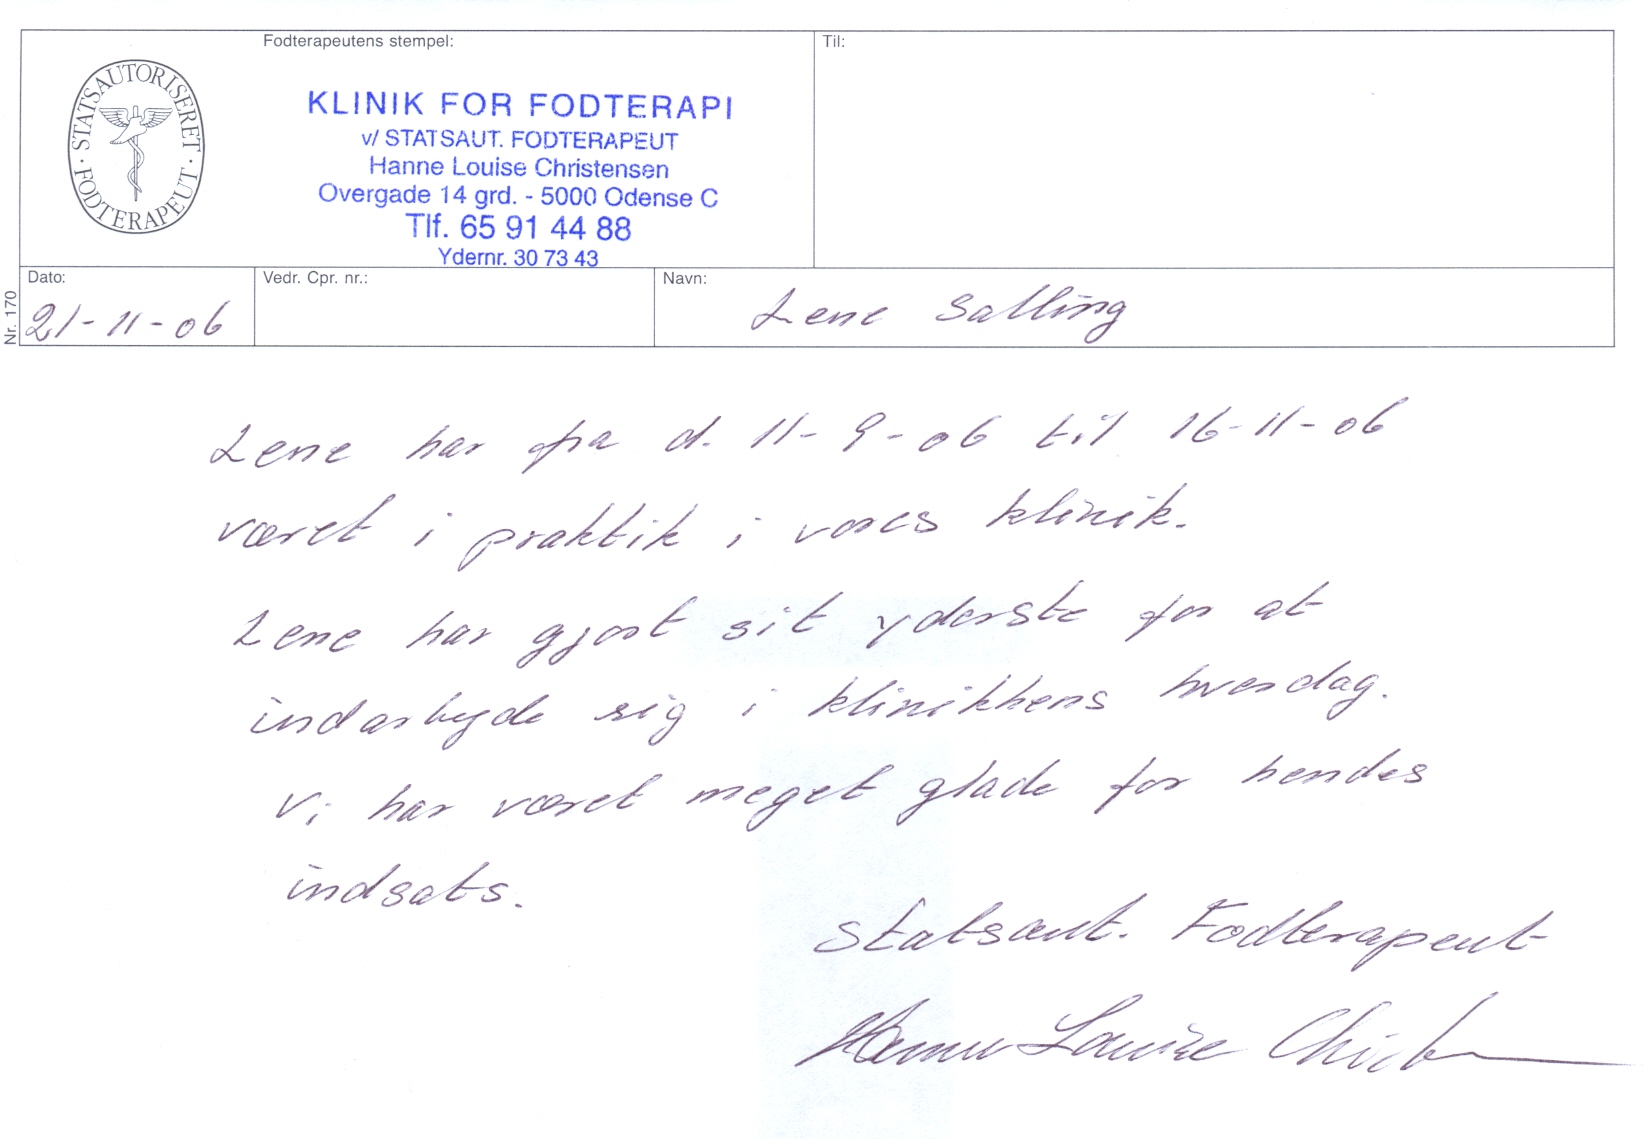 Fodterapeutens stempel:
Til:
STATSAUTORISERET · FODTERAPEUT ·
KLINIK FOR FODTERAPI
v/ STATSAUT. FODTERAPEUT
Hanne Louise Christensen
Overgade 14 grd. - 5000 Odense C
Tlf. 65 91 44 88
Ydernr. 30 73 43
Nr. 170
Dato:
21-11-06
Vedr. Cpr. nr.:
Navn:
Lene Salling
Lene har fra d. 11-9-06 til 16-11-06
været i praktik i vores klinik.
Lene har gjort sit yderste for at
indarbejde sig i klinikkens hverdag.
Vi har været meget glade for hendes
indsats.
Statsaut. Fodterapeut
Hanne Louise